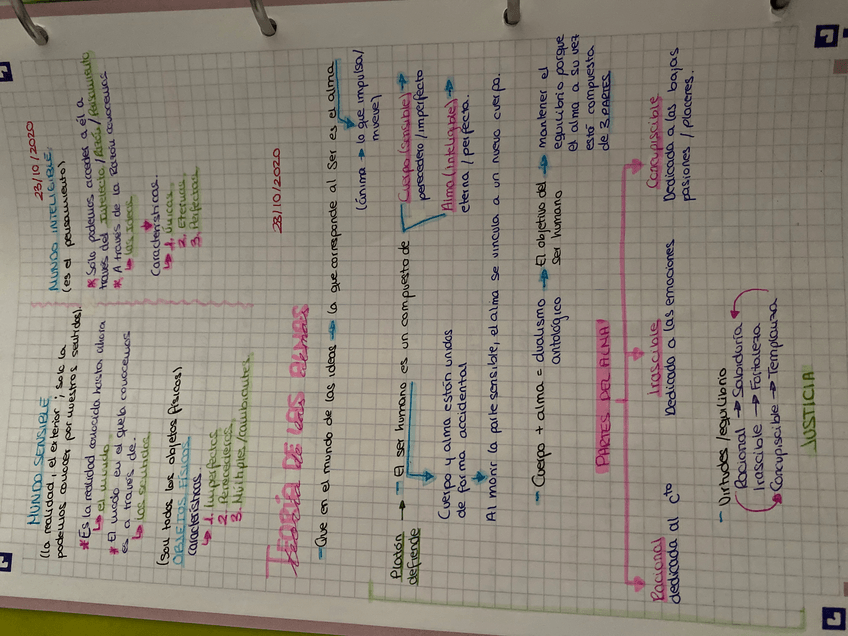 23/10/2020
MUNDO SENSIBLE
(la realidad, el exterior; solo la
podemos conocer por nuestros sentidos).
* Es la realidad conocida hasta ahora
↳ el mundo
* El modo en el que la conocemos
es a través de..
↳ Los sentidos
(son todos los objetos físicos)
OBJETOS FÍSICOS
características
↳ 1. Imperfectos
2. Perecederos
3. Múltiples/cambiantes
MUNDO INTELIGIBLE
(es el pensamiento)
* Solo podemos acceder a él a
través del Intelecto/Razón/Pensamiento
* A través de la Razón conocemos
↳ las Ideas
Características.
↳ 1. Únicas
2. Eternas
3. Perfectas
28/10/2020
TEORÍA DE LAS ALMAS
- Que en el mundo de las ideas → lo que corresponde al Ser es el alma
(ánima → lo que impulsa/
mueve)
Platón → - El ser humano es un compuesto de
defiende
Cuerpo (sensible) →
perecedero/imperfecto
Alma (inteligible) →
eterna/perfecta.
Cuerpo y alma están unidos
de forma accidental
Al morir la parte sensible, el alma se vincula a un nuevo cuerpo.
- Cuerpo + alma = dualismo
antológico
→ El objetivo del
ser humano
→ mantener el
equilibrio porque
el alma a su vez
está compuesta
de 3 PARTES.
PARTES DEL ALMA
Racional
dedicada al cto
Irascible
Dedicado a las emociones
Concupiscible
Dedicada a las bajas
pasiones/placeres.
- Virtudes/equilibrio
Racional → Sabiduría
Irascible → Fortaleza
Concupiscible → Templanza
JUSTICIA